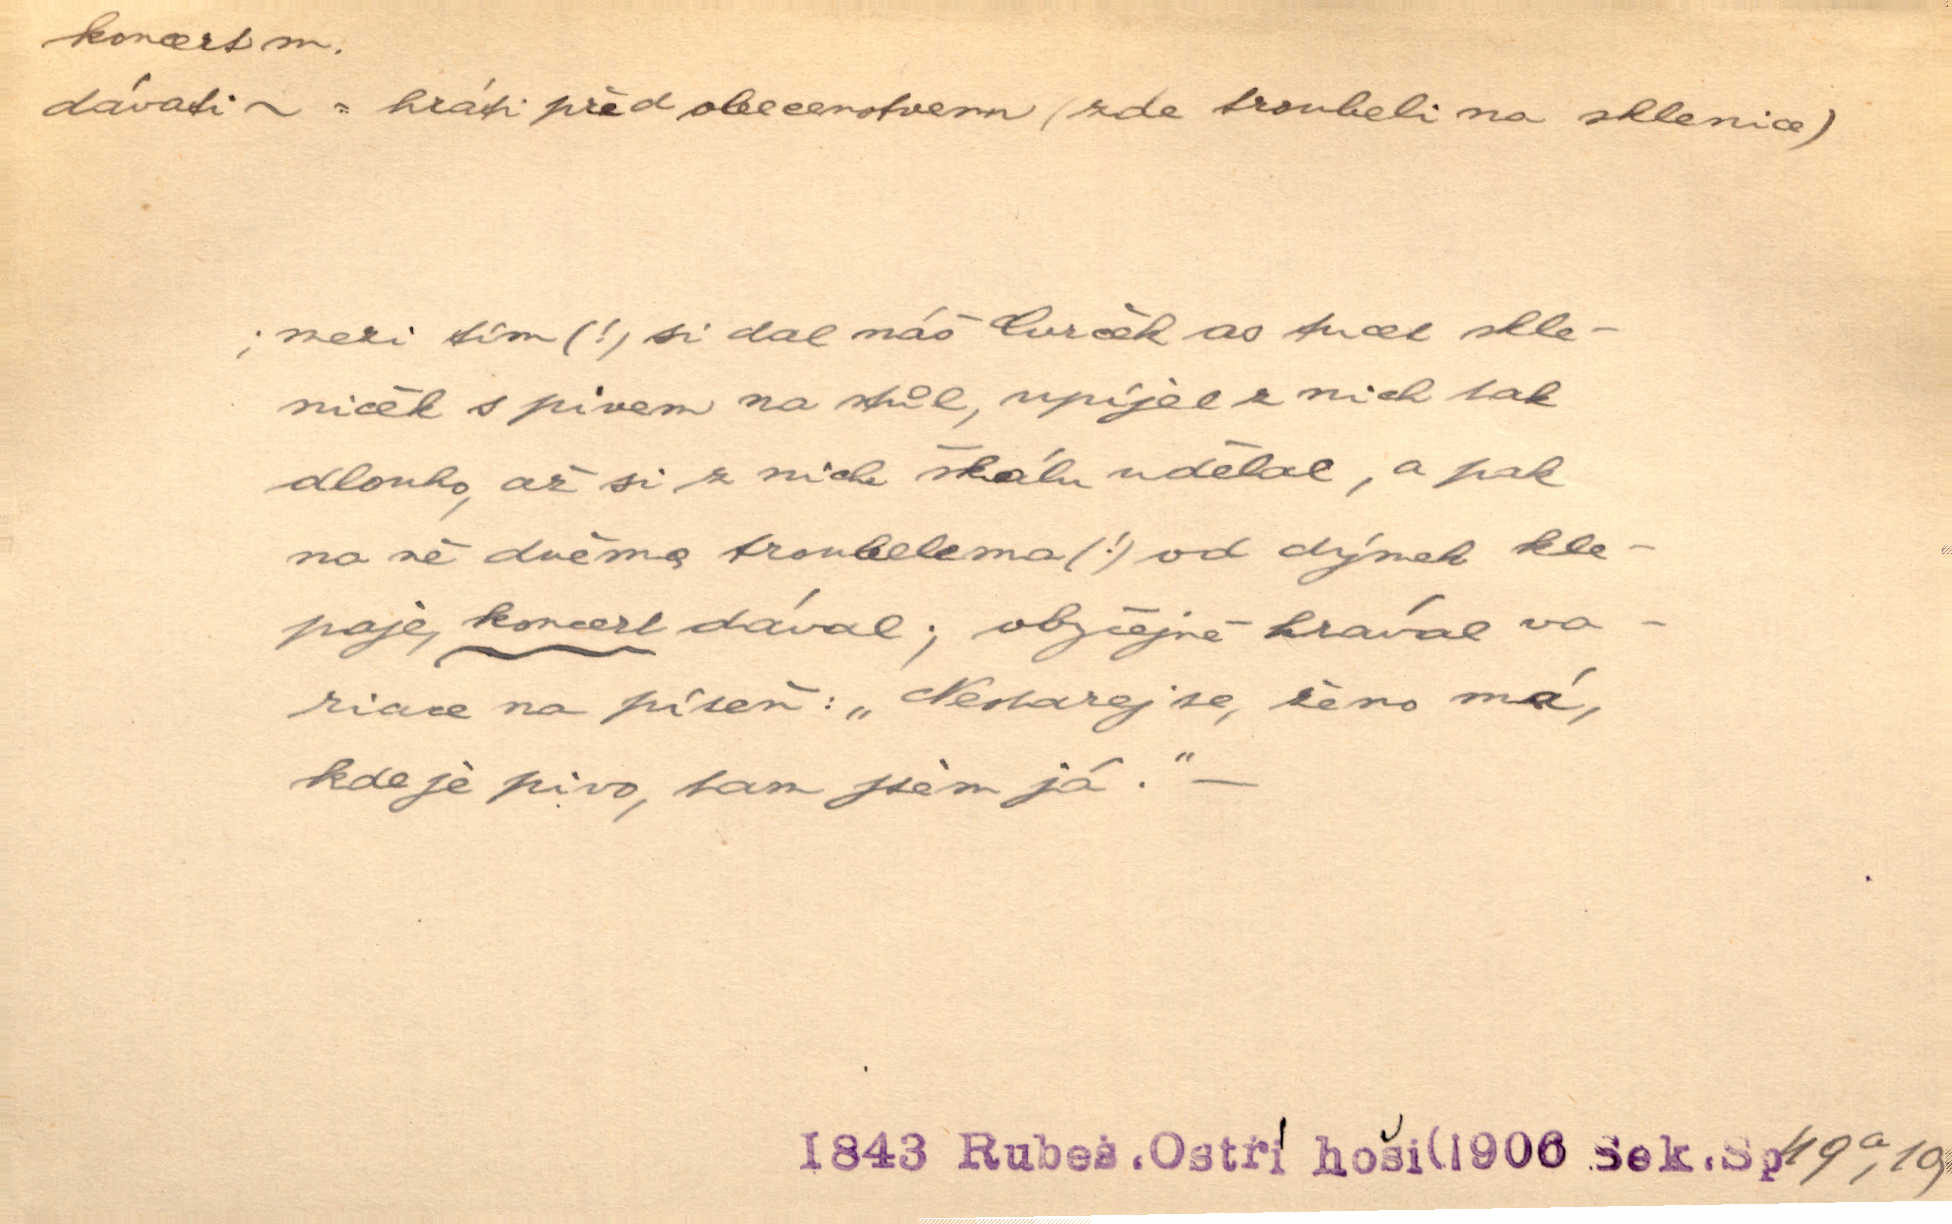 koncert m.
dávati ~ = hráti před obecenstvem (zde troubeli na sklenice)
; mezi tím (!) si dal náš Cvrček as tucet skle-
niček s pivem na stůl, upíjel z nich tak
dlouho, až si z nich škálu udělal, a pak
na ně dvěma troubelema (!) od dýmek kle-
paje, koncert dával; obyčejně hrával va-
riace na píseň: „Nestarej se, ženo má,
kde je pivo, tam jsem já." —
1843 Rubeš. Ostří hoši (1906 Sek. Sp 49a, 19)